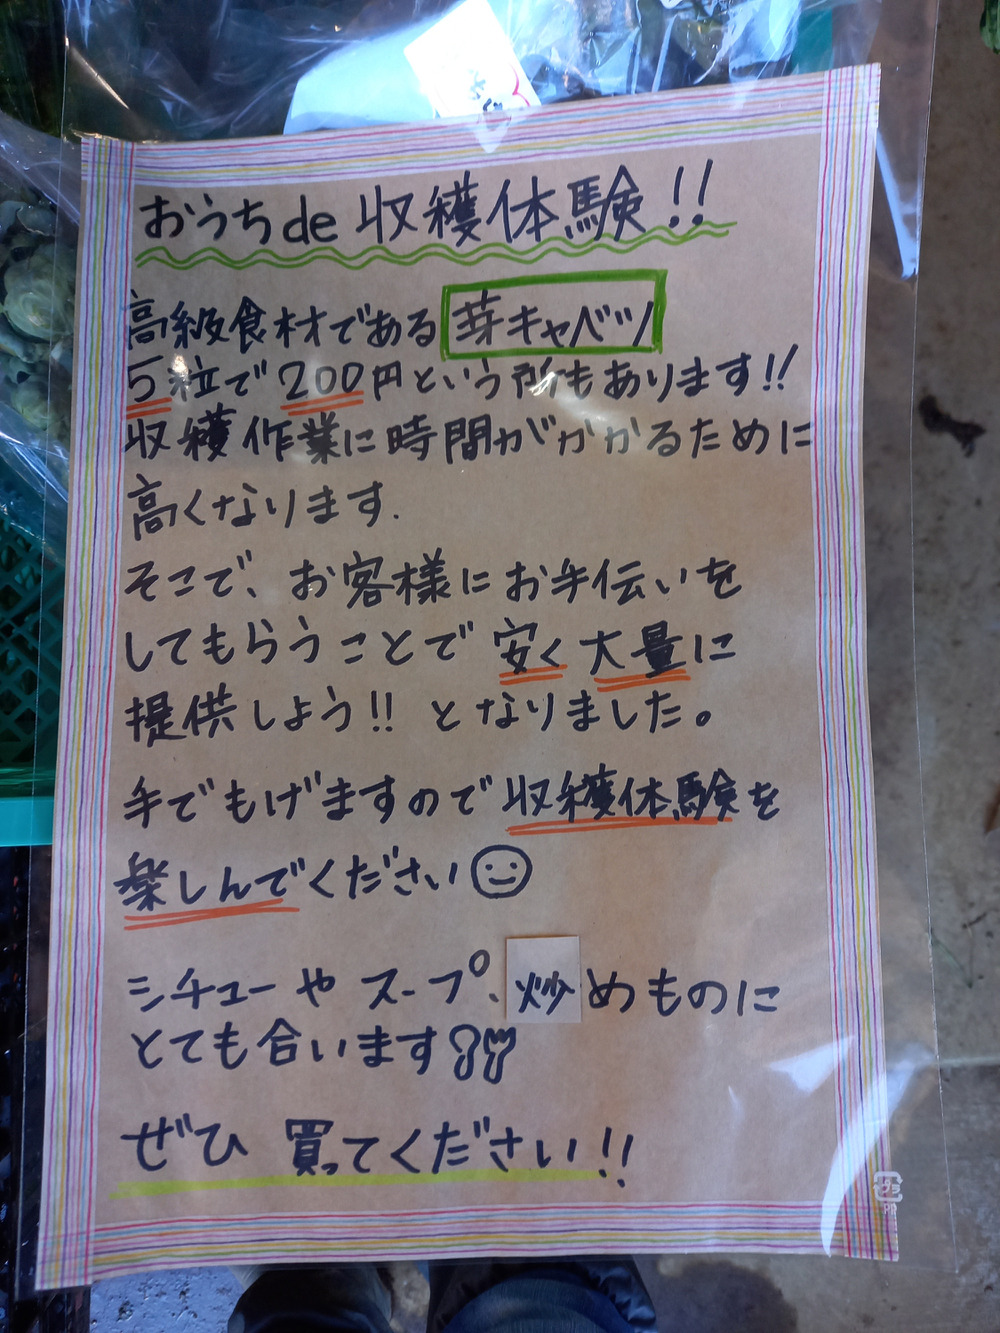 おうちde収穫体験!!
高級食材である芽キャベツ
5粒で200円という所もあります!!
収穫作業に時間がかかるために
高くなります.
そこで、お客様にお手伝いを
してもらうことで安く大量に
提供しよう!!となりました。
手でもげますので収穫体験を
楽しんでください
シチューやスープ、炒めものに
とても合います
ぜひ買ってください!!
プラ
PP